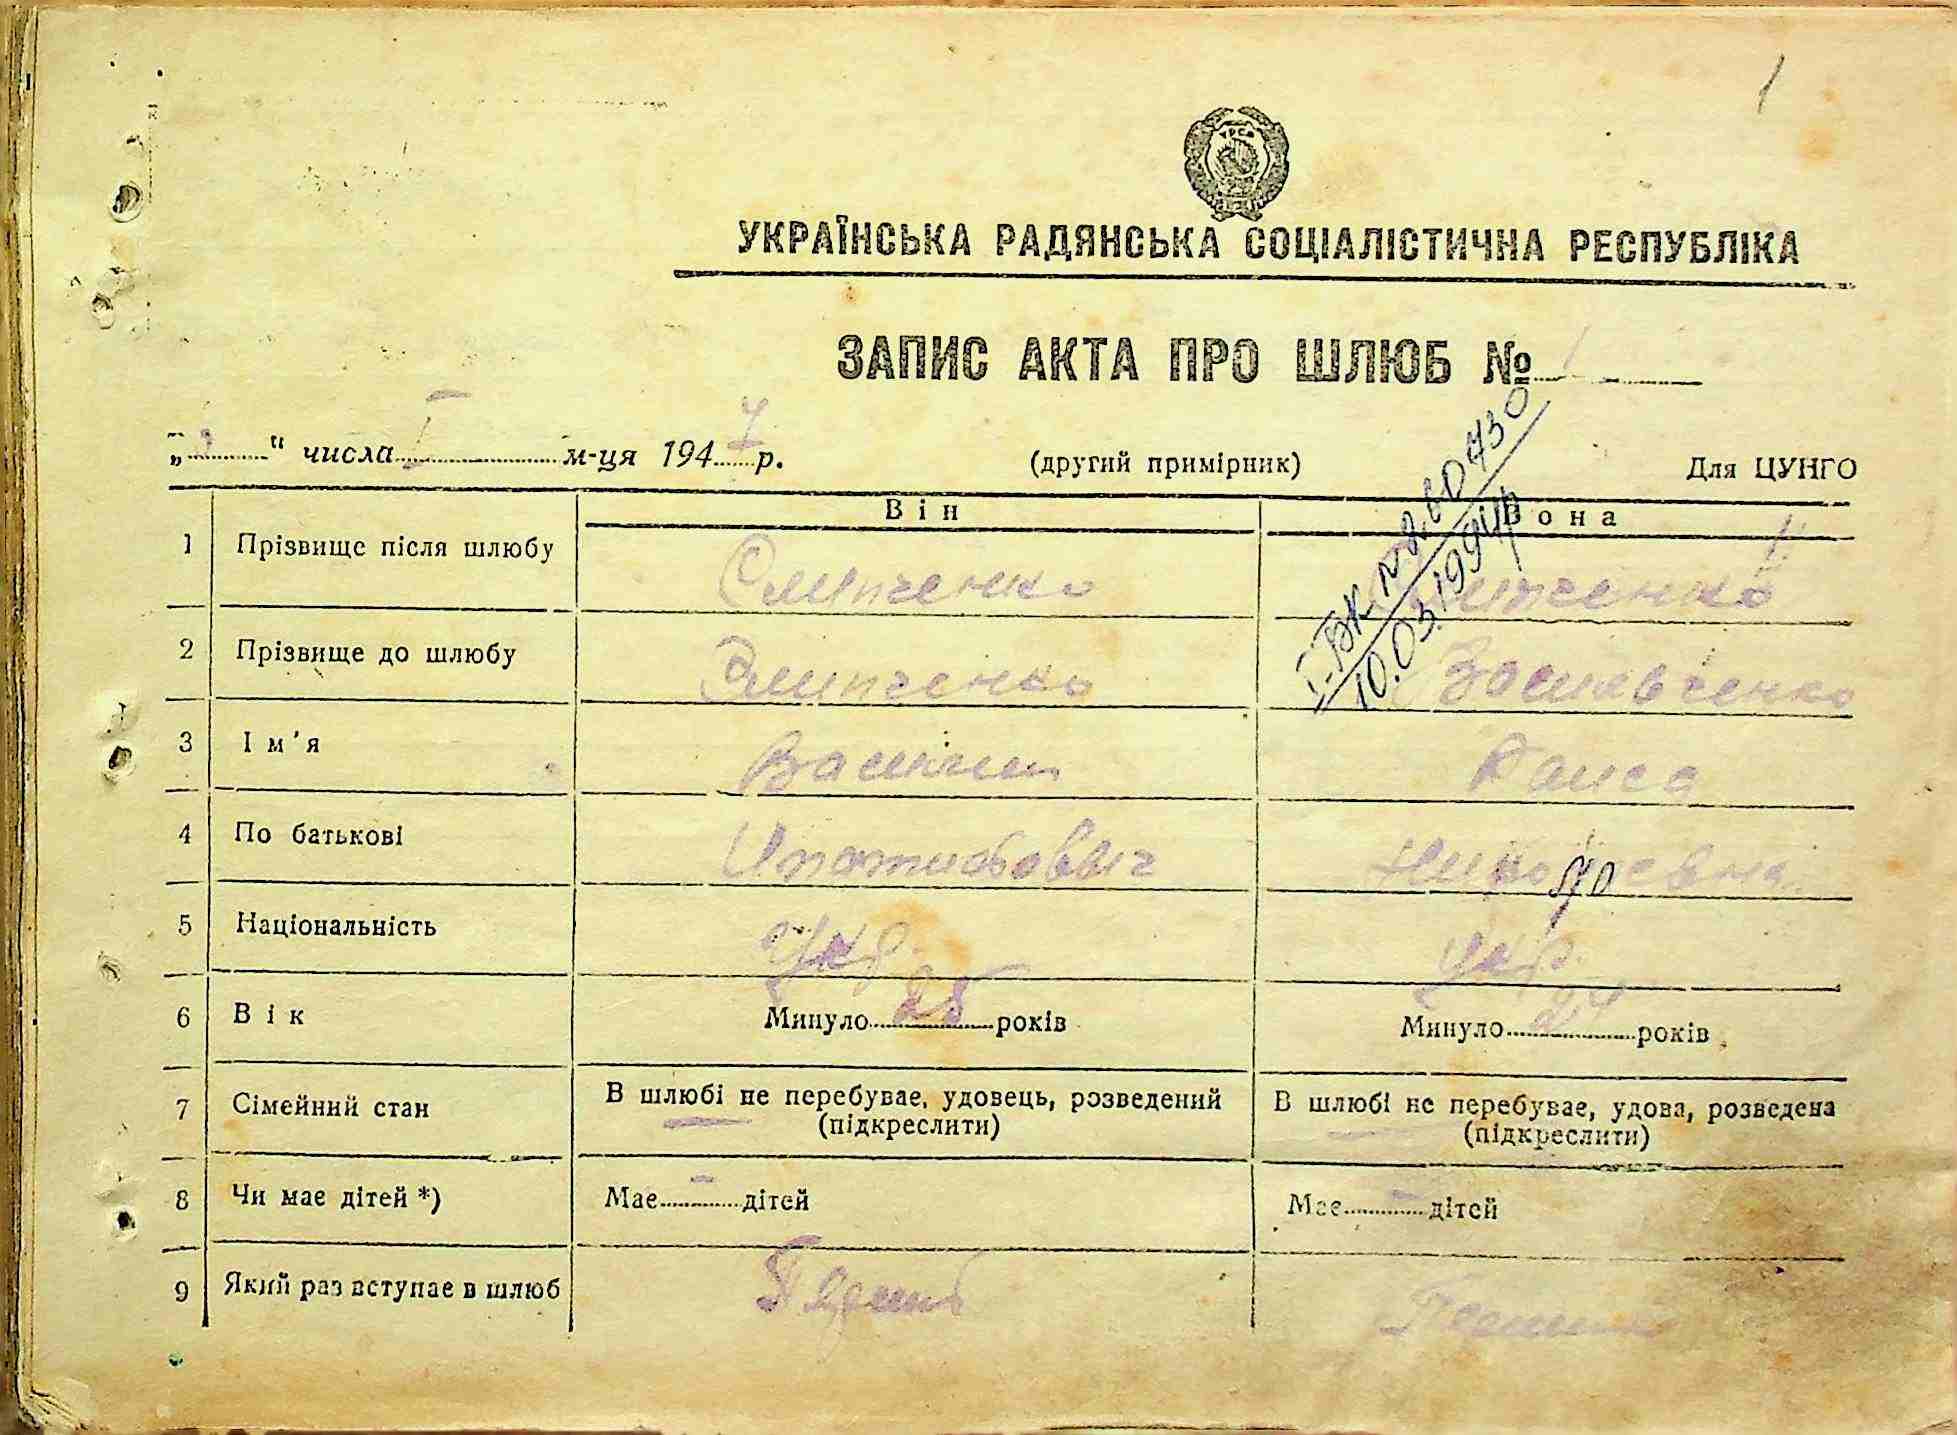 1
УРСР
УКРАЇНСЬКА РАДЯНСЬКА СОЦІАЛІСТИЧНА РЕСПУБЛІКА
ЗАПИС АКТА ПРО ШЛЮБ № 1
„ “ числа I м-ця 1947 р. (другий примірник) Для ЦУНГО
І-БК № 260730
10.03.1994р
Він Вона
1 Прізвище після шлюбу Слипченко Слипченко
2 Прізвище до шлюбу Слипченко Васильченко
3 Ім'я Василий Раиса
4 По батькові Ипатиевич Николаевна
5 Національність Укр. Укр.
6 Вік Минуло 25 років Минуло 24 років
7 Сімейний стан В шлюбі не перебуває, удовець, розведений В шлюбі не перебуває, удова, розведена
(підкреслити) (підкреслити)
8 Чи має дітей *) Має – дітей Має – дітей
9 Який раз вступає в шлюб